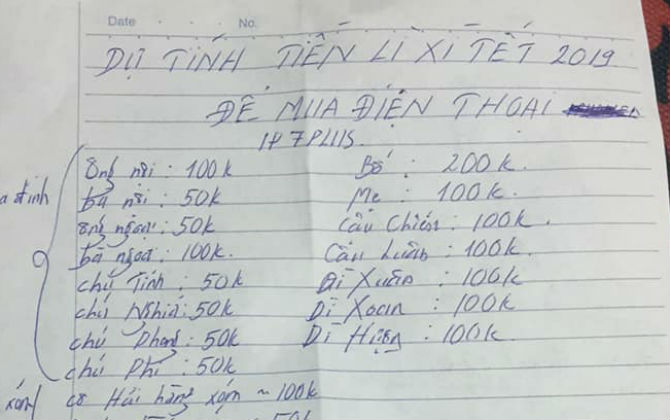 Date No.
DỰ TÍNH TIỀN LÌ XÌ TẾT 2019
ĐỂ MUA ĐIỆN THOẠI
IP 7 PLUS.
a đình
Ông nội : 100k
bà nội : 50k
ông ngoại : 50k
bà ngoại : 100k.
chú Tính : 50k
chú Nghĩa : 50k
chú Phong : 50k
chú Phi : 50k
Bố : 200k.
Mẹ : 100k.
Cậu Chiến : 100k.
Cậu Luân : 100k.
Dì Xuân : 100k
Dì Xoan : 100k
Dì Hiện : 100k.
xóm
cô Hải hàng xóm ~ 100k
50k